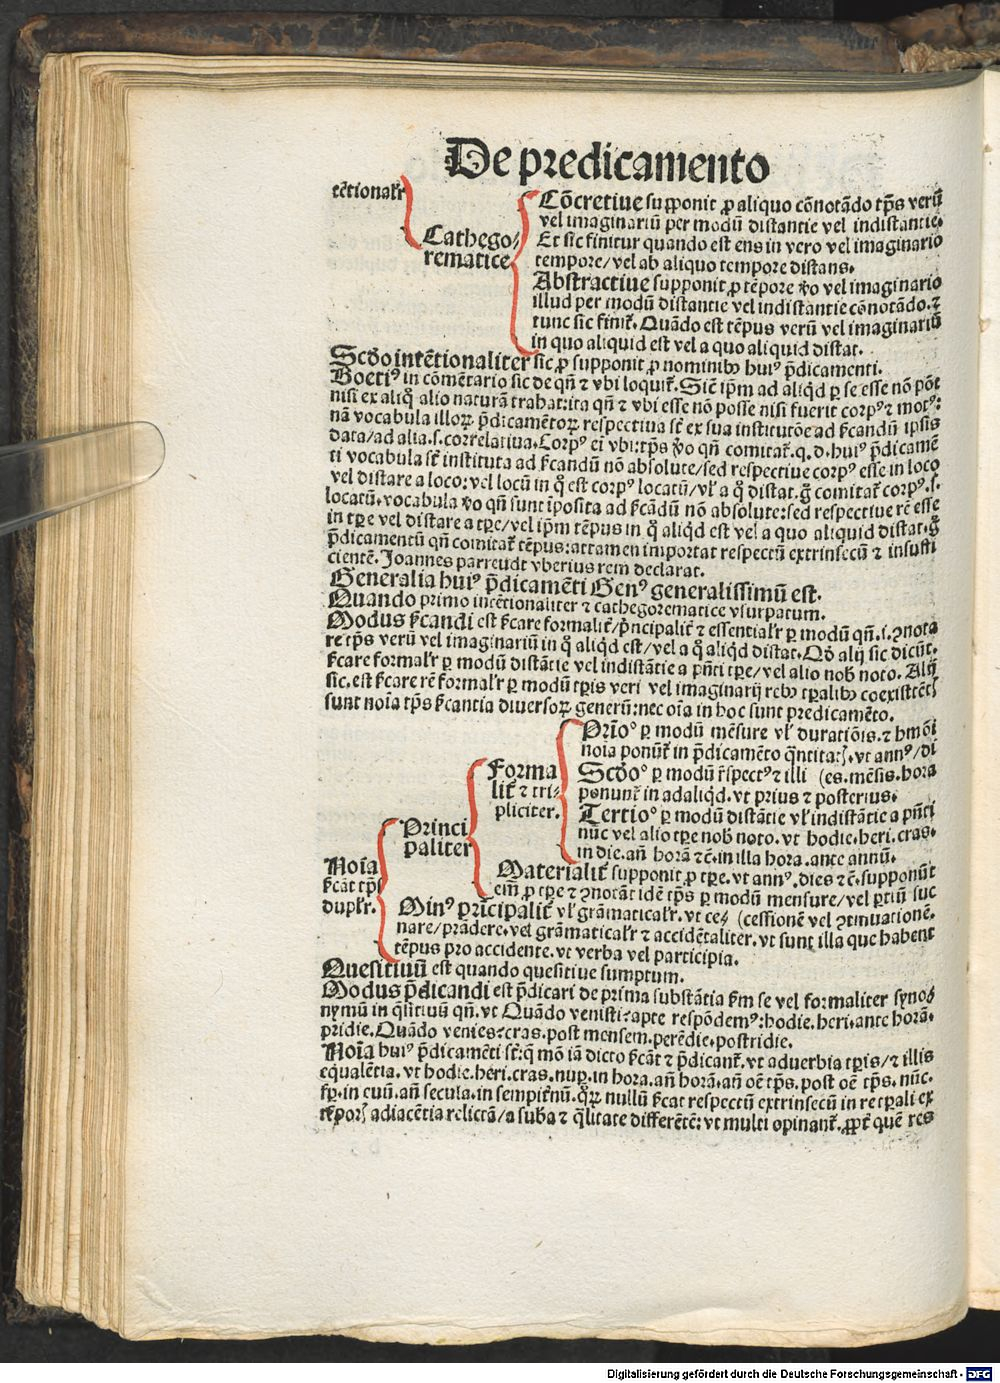 De predicamento
tētionaľr
Cathego/
rematice
Cōcretiue supponit ꝓ aliquo cōnotādo tp̄s verū
vel imaginariū per modū distantie vel indistantie.
Et sic finitur quando est ens in vero vel imaginario
tempore/vel ab aliquo tempore distans.
Abstractiue supponit ꝓ tēpore ṽo vel imaginario
illud per modū distantie vel indistantie cōnotādo. ⁊
tunc sic finiť. Quādo est tēpus verū vel imaginariū
in quo aliquid est vel a quo aliquid distat.
Scďo intētionaliter sic ꝓ supponit ꝓ nominibꝰ huiꝰ p̄dicamenti.
Boetiꝰ in cōmētario sic de qñ ⁊ vbi loquiť. Sicť ip̄m ad aliq̄d ꝑ se esse nō pōt
nisi ex aliq̊ alio naturā trahat: ita qñ ⁊ vbi esse nō posse nisi fuerit corpꝰ ⁊ motꝰ:
nā vocabula illoꝝ p̄dicamētoꝝ respectiua sť ex sua institutōe ad ẜcandū ipsis
data/ad alia.s.correlatiua. Corpꝰ ei vbi: tp̄s ṽo qñ comitať. q.d. huiꝰ p̄dicamē
ti vocabula sť instituta ad ẜcandū nō absolute/sed respectiue corpꝰ esse in loco
vel distare a loco: vel locū in q̊ est corpꝰ locatū/vľ a q̊ distat. g̊ comitať corpꝰ.s.
locatū. vocabula ṽo qñ sunt īposita ad ẜcādū nō absolute: sed respectiue rē esse
in tꝑe vel distare a tꝑe/vel ip̄m tēpus in q̊ aliq̄d est vel a quo aliquid distat. g̊
p̄dicamentū qñ comitať tēpus: attamen importat respectū extrinsecū ⁊ insuffi
cientē. Joannes parreudt vberius rem declarat.
Generalia huiꝰ p̄dicamēti Genꝰ generalissimū est.
Quando primo intētionaliter ⁊ cathegorematice vsurpatum.
Modus ẜcandi est ẜcare formaliť/p̄ncipaliť ⁊ essentiaľr ꝑ modū qñ.i.ꝯnota
re tp̄s verū vel imaginariū in q̊ aliq̄d est/vel a q̊ aliq̄d distat. Qđ alij sic dicūt.
ẜcare formaľr ꝑ modū distātie vel indistātie a p̄nti tꝑe/vel alio nob̄ noto. Alij
sic. est ẜcare rē formaľr ꝑ modū tꝑis veri vel imaginarij rebꝰ tꝑalibꝰ coexistētꝭ
sunt noīa tp̄s ẜcantia diuersoꝝ generū: nec oīa in hoc sunt predicamēto.
Noīa
ẜcāt tp̄s
dupľr.
Princi
paliter
Forma
liť ⁊ tri-
pliciter.
Prīo° ꝑ modū mēsure vľ duratiōis. ⁊ hmōi
noīa ponūť in p̄dicamēto q̄ntitaꝭ. vt annꝰ/di
Scďo° ꝑ modū ršpectꝰ ⁊ illi (es. mēsis. hora
ponunť in adaliq̄d. vt prius ⁊ posterius.
Tertio° ꝑ modū distātie vľ indistātie a p̄nti
nūc vel alio tꝑe nob̄ noto. vt hodie. heri. cras.
in die. añ horā ⁊c̄. in illa hora. ante annū.
Materialiť supponiť ꝓ tꝑe. vt annꝰ. dies ⁊c̄. supponūt
em̄ ꝓ tꝑe ⁊ ꝯnotāt idē tp̄s ꝑ modū mensure/vel ꝑtiū suc
Minꝰ prīcipaliť vľ grāmaticaľr. vt ce⸗ (cessionē vel ꝯtinuationē.
nare/prādere. vel grāmaticaľr ⁊ accidētaliter. vt sunt illa que habent
tēpus pro accidente. vt verba vel participia.
Quesitiuū est quando quesitiue sumptum.
Modus p̄dicandi est p̄dicari de prima substātia ẜm se vel formaliter synoō
nymū in q̄litiuū qñ. vt Quādo venisti? apte respōdemꝰ: hodie. heri. ante horā.
pridie. Quādo venies? cras. post mensem. perēdie. postridie.
Noīa huiꝰ p̄dicamēti sť: q̄ mō iā dicto ẜcāt ⁊ p̄dicanť. vt aduerbia tꝑis/⁊ illis
equalētia. vt hodie. heri. cras. nuꝑ. in hora. añ horā. añ oē tp̄s. post oē tp̄s. nūc.
sꝑ. in euū. añ secula. in sempitnū. q̄ꝝ nullū ẜcat respectū extrinsecū in re tꝑali ex
tꝑoꝝ adiacētia relictā/a sub̄a ⁊ q̄litate differētē: vt multi opinanť. ꝓpť quē res
Digitalisierung gefördert durch die Deutsche Forschungsgemeinschaft - DFG